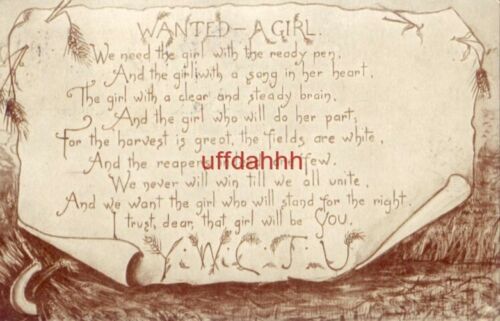 WANTED - A GIRL.
We need the girl with the ready pen,
And the girl with a song in her heart,
The girl with a clear and steady brain,
And the girl who will do her part;
For the harvest is great, the fields are white,
And the reapers few.
uffdahhh
We never will win till we all unite,
And we want the girl who will stand for the right,
trust, dear, that girl will be YOU.
Y. W. C. T. U.